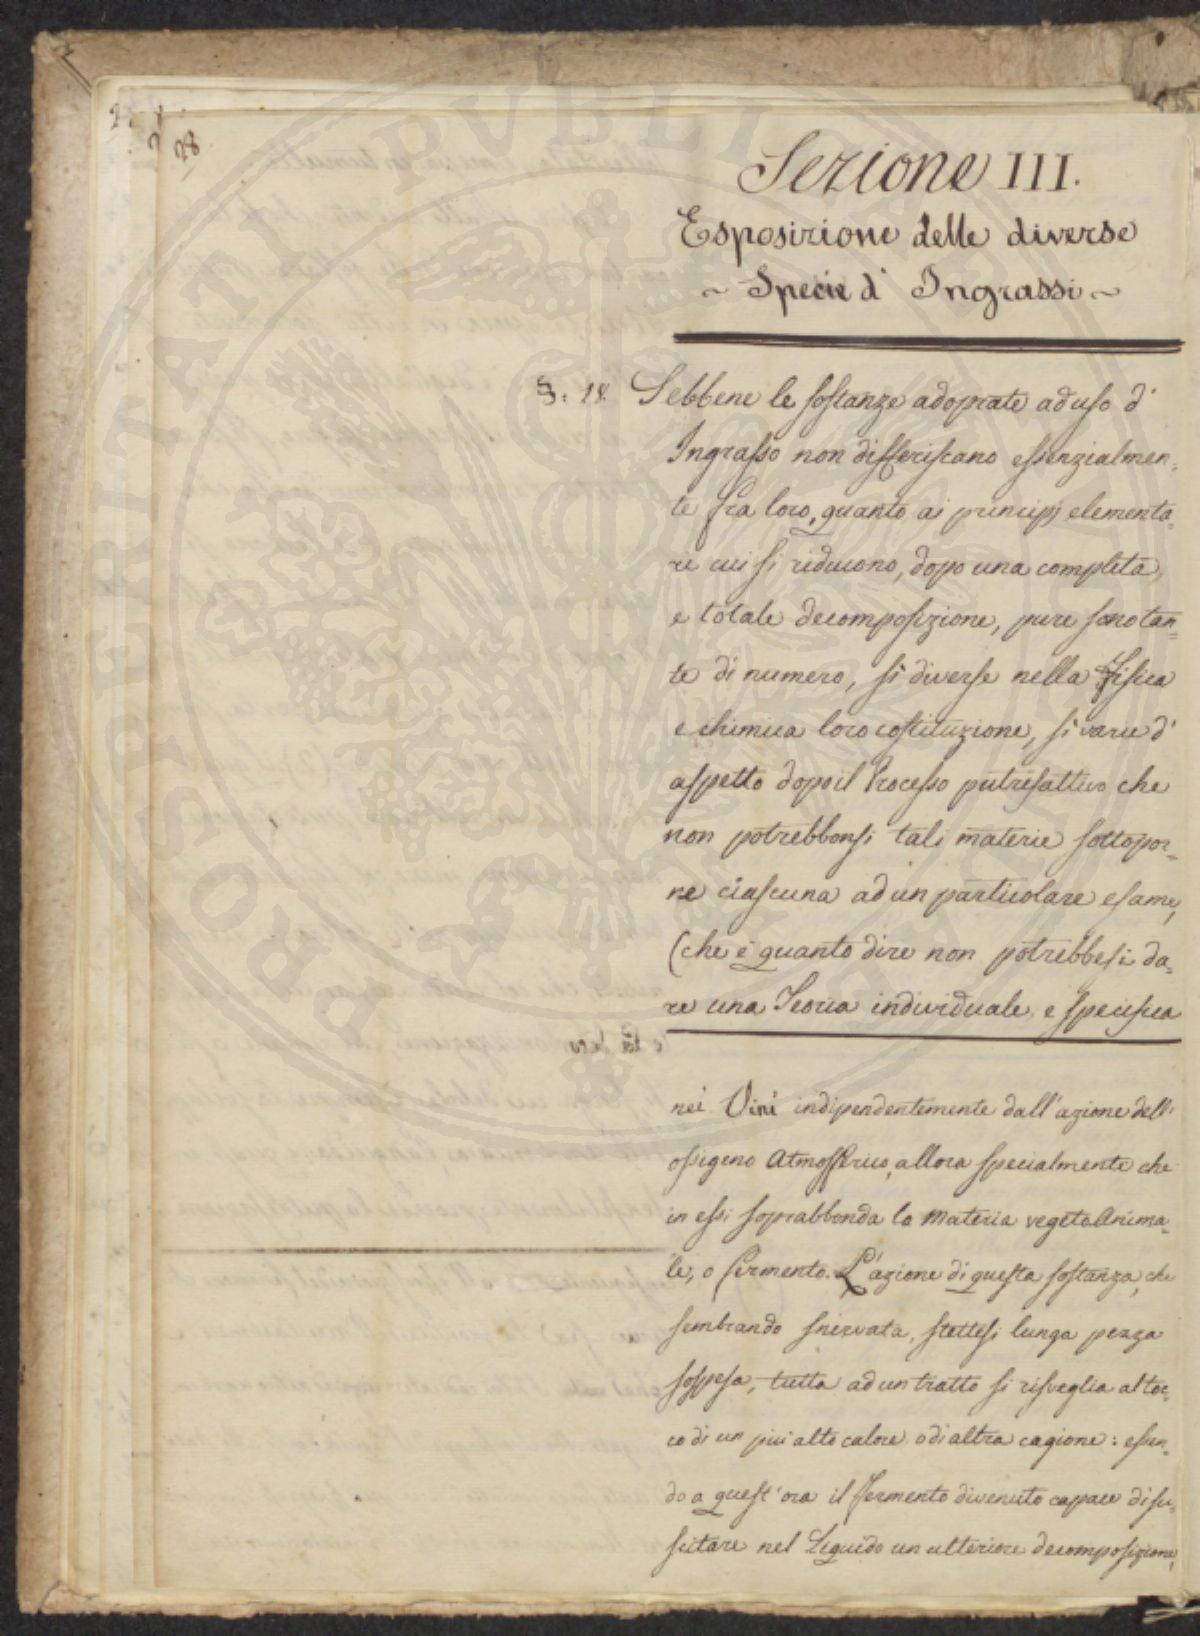 28
Sezione III.
Esposizione delle diverse
~ Specie d' Ingrassi ~
§: 18. Sebbene le sostanze adoprate ad uso d'
Ingrasso non differiscano essenzialmen-
te fra loro, quanto ai principj elementa-
re cui si riducono, dopo una completa,
e totale decomposizione, pure sono tan-
te di numero, sì diverse nella Fisica
e chimica loro costituzione, sì varie d'
aspetto dopo il Processo putrefattivo che
non potrebbonsi tali materie sottopor-
re ciascuna ad un particolare esame,
(che è quanto dire non potrebbesi da-
re una Teoria individuale, e specifica
nei Vini indipendentemente dall'azione dell'
ossigeno Atmosferico, allora specialmente che
in essi soprabbonda la Materia vegeto Anima-
le, o fermento. L'azione di questa sostanza, che
sembrando snervata, stettesi lunga pezza
sospesa, tutta ad un tratto si risveglia al toc-
co di un più alto calore o di altra cagione: essen-
do a quest'ora il fermento divenuto capace di su-
scitare nel Liquido un ulteriore decomposizione,
PROSPERITATI PUBLI